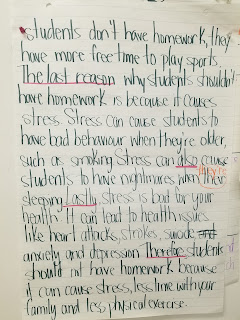 students don't have homework, they
have more free time to play sports.
The last reason why students shouldn't
have homework is because it causes
stress. Stress can cause students to
have bad behaviour when they're older,
such as smoking. Stress can also cause
students to have nightmares when their
they're
sleeping. Lastly, stress is bad for your
health. It can lead to health issues
like heart attacks, strokes, suicide and
anxiety and depression. Therefor students
should not have homework because
it can cause stress, less time with your
family and less physical exercise.